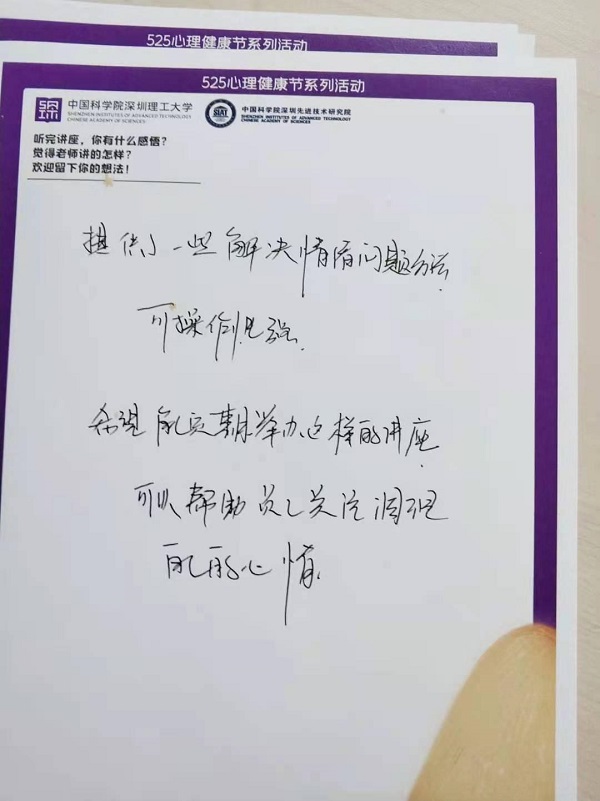 525心理健康节系列活动
525心理健康节系列活动
中国科学院深圳理工大学
SHENZHEN INSTITUTES OF ADVANCED TECHNOLOGY
CHINESE ACADEMY OF SCIENCES
SIAT
中国科学院深圳先进技术研究院
SHENZHEN INSTITUTES OF ADVANCED TECHNOLOGY
CHINESE ACADEMY OF SCIENCES
听完讲座，你有什么感悟？
觉得老师讲的怎样？
欢迎留下你的想法！
提供了一些解决情绪问题方法
可操作性强
希望能定期举办这样的讲座
可以帮助员工关注调理
自己的心情